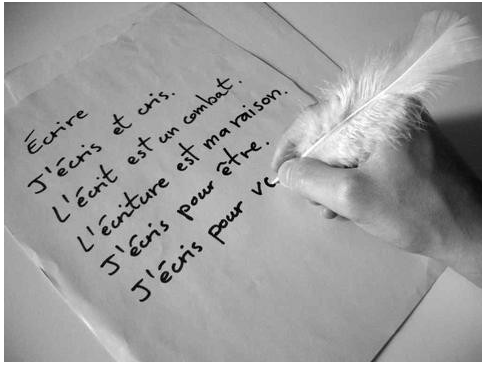 Écrire
J'écris et cris.
L'écrit est un combat.
L'écriture est ma raison.
J'écris pour être.
J'écris pour